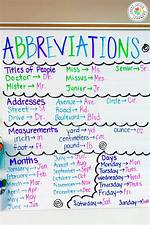 ABBREVIATIONS
Titles of People
Miss → Ms. Senior → Sr.
Doctor → Dr. Missus → Mrs.
Mister → Mr. Junior → Jr.
Addresses
Avenue → Ave. Circle → Cir.
Street → St. Road → Rd.
Drive → Dr. Boulevard → Blvd.
Measurements
yard → yd. ounce → oz.
inch → in.
foot → ft.
Months
Days
July →
August → Aug.
Monday → Mon.
September → Sept.
Tuesday → Tues.
October → Oct.
Wednesday → Wed.
November → Nov.
Thursday → Thurs.
December → Dec.
Friday → Fri.
May
June
Saturday → Sat. Sunday → Sun.